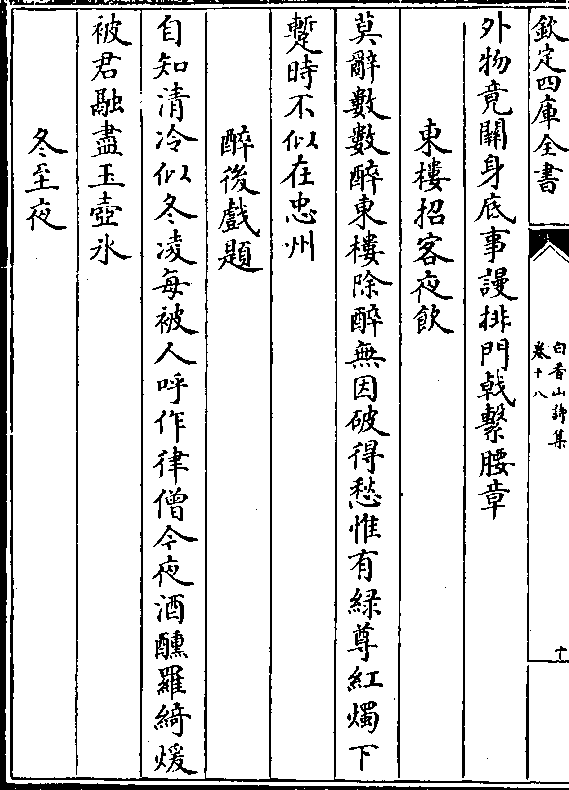 欽定四庫全書
白香山詩集
卷十八
十
外物竟關身底事謾排門戟繫腰章
東樓招客夜飲
莫辭數數醉東樓除醉無因破得愁惟有綠尊紅燭下
蹔時不似在忠州
醉後戲題
自知清冷似冬凌每被人呼作律僧今夜酒醺羅綺煖
被君融盡玉壺氷
冬至夜